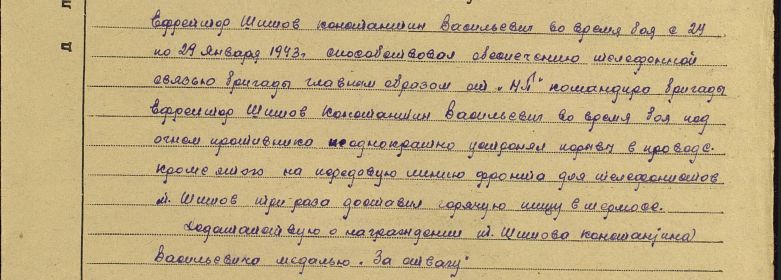 Ефрейтор Шишов Константин Васильевич во время боя с 24
по 29 Января 1943г. способствовал обеспечению телефонной
связью бригады главным образом от „НП" командира бригады
Ефрейтор Шишов Константин Васильевич во время боя под
огнем противника неоднократно устронял порывы в проводе.
Кроме этого на передовую линию фронта для телефонистов
т. Шишов три раза доставил горячую пищу в термосе.
Ходатайствую о награждении т. Шишова Константина
Васильевича медалью „За отвагу"